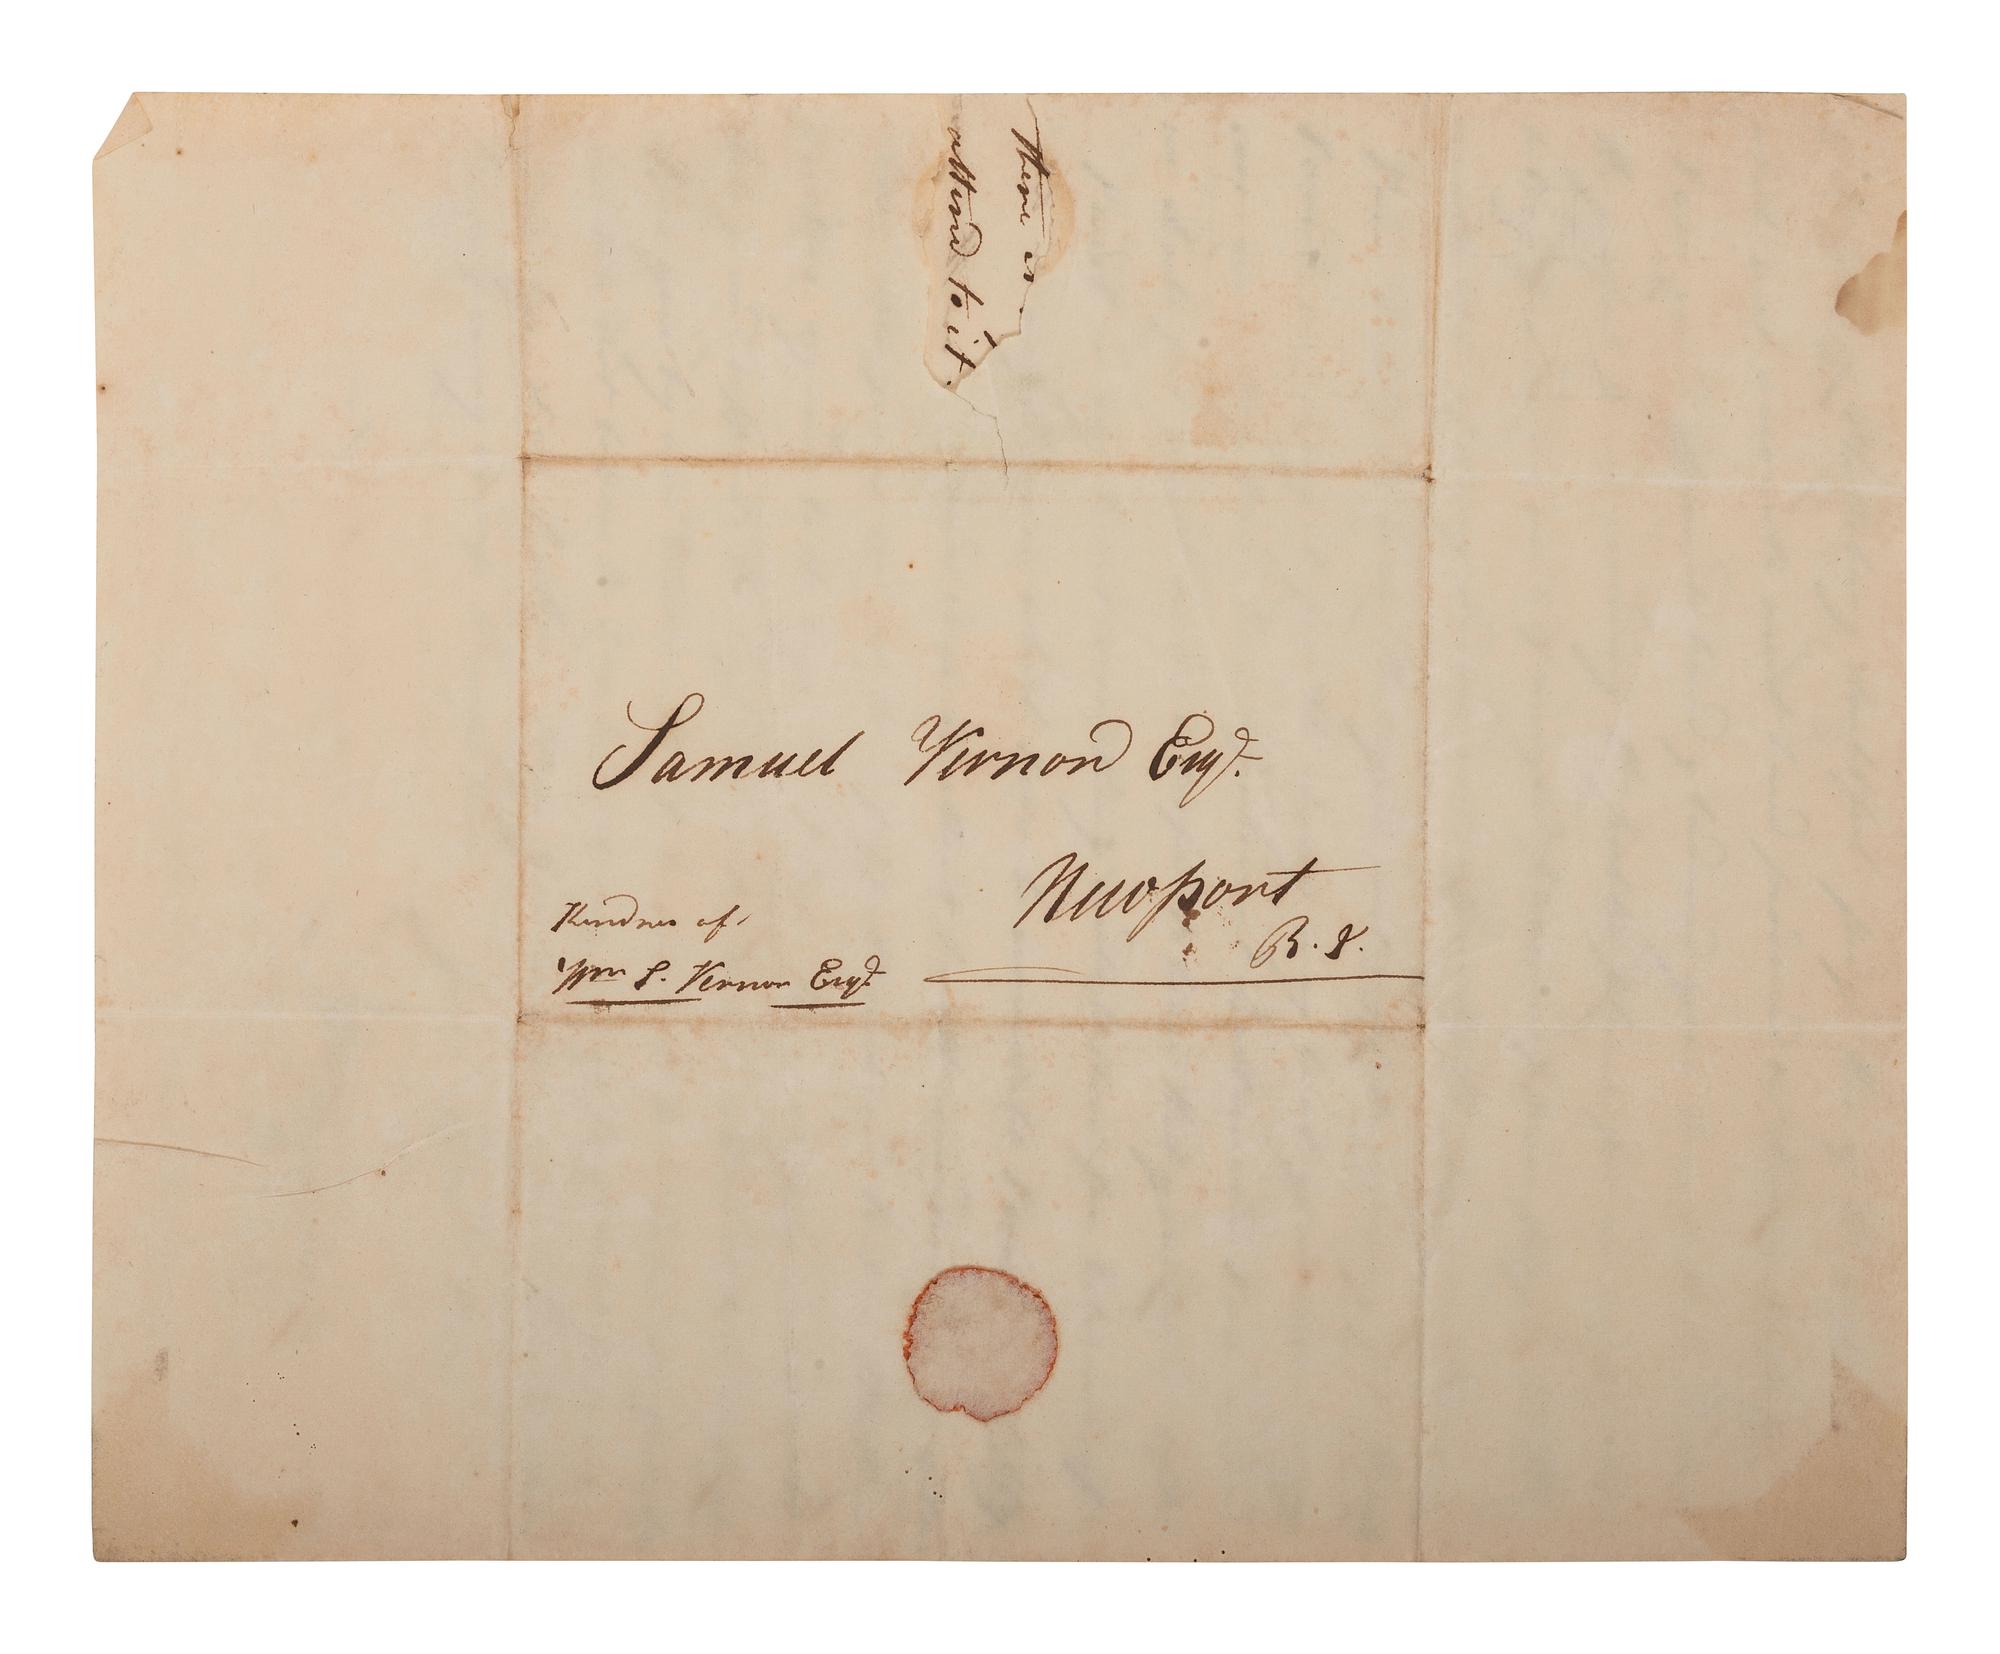 there is
attend to it.
Samuel Vernon Esqr.
Newport
R. I.
Kindnes of
Wm S. Vernon Esqr.